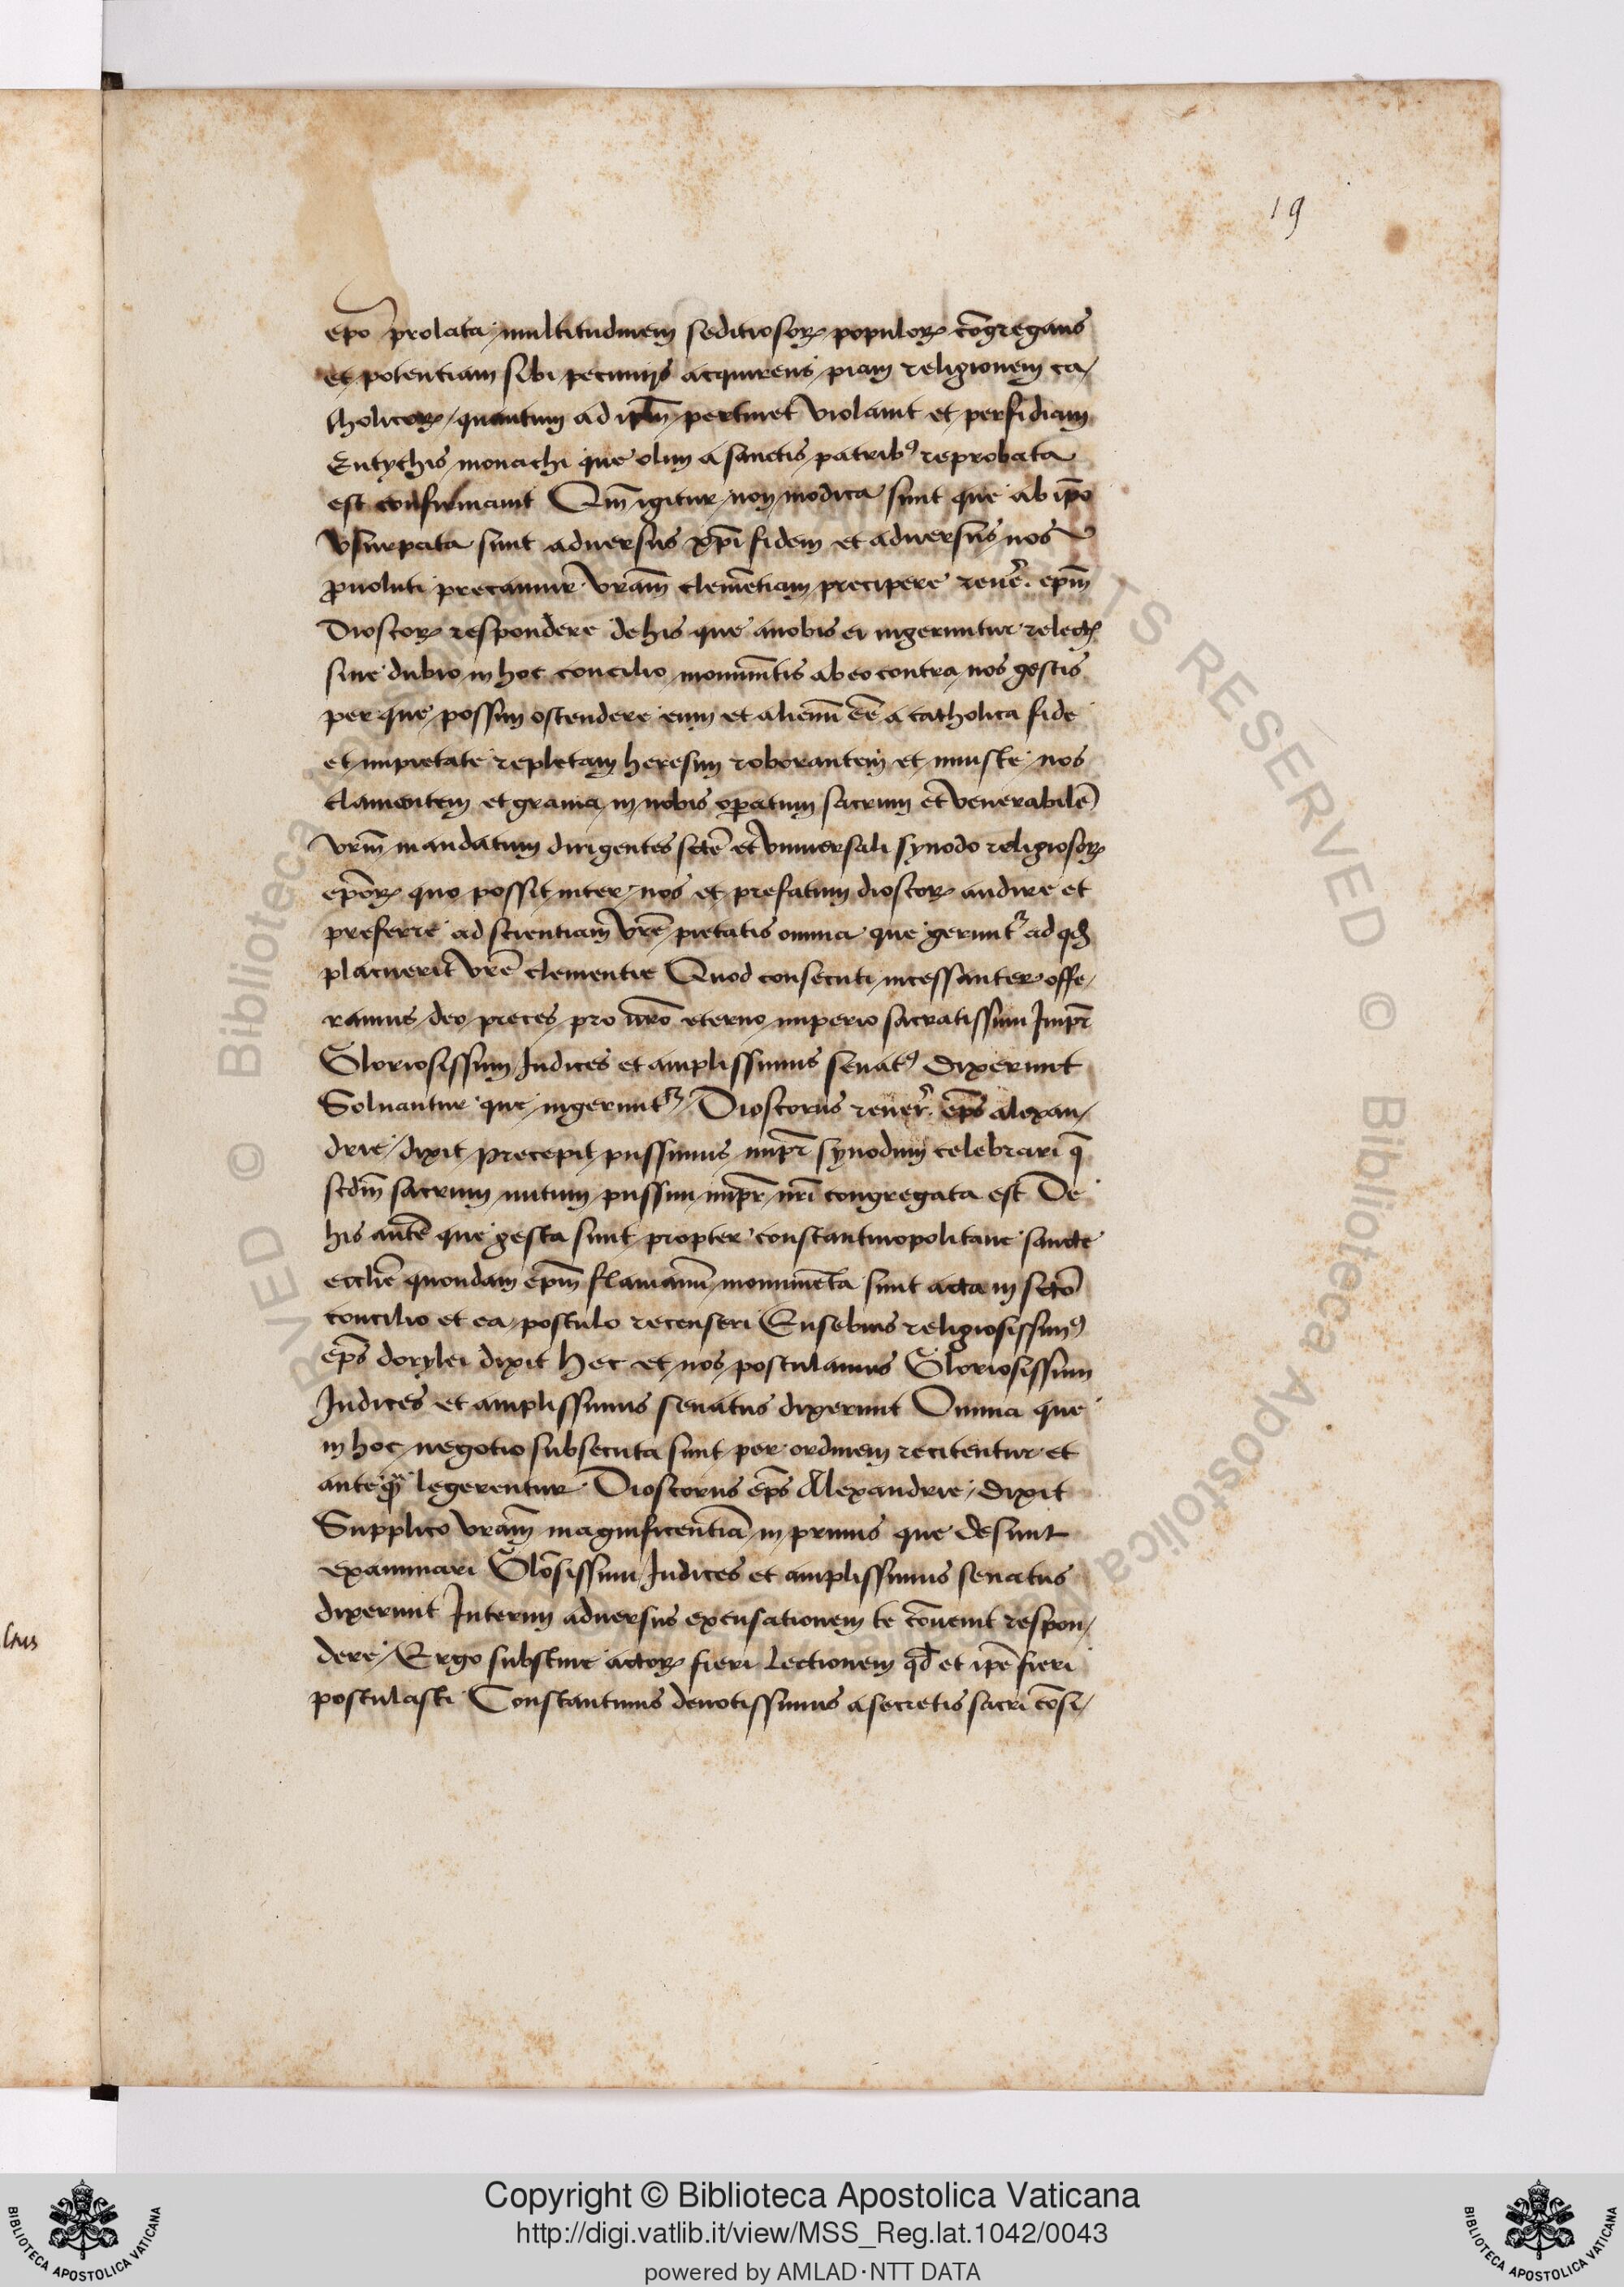 19
epo prolata multitudinem seditiosoꝝ populoꝝ cōgregans
et potentiam sibi pecunijs acquirens piam religionem ca/
tholicoꝝ quantum ad ip̄m pertinet violauit et perfidiam
Eutychis monachi que olim a sanctis patribꝰ reprobata
est confirmauit Qm̄ igitur non modica sunt que ab ip̄o
vsurpata sunt aduersus xp̄i fidem et aduersus nos
ꝓuoluti precamur vram̄ clemētiam precipere reuer̄. ep̄m
Dioscoꝝ respondere de his que a nobis ei ingeruntur
sine dubio in hoc concilio monum̄tis ab eo contra nos gestis
per que possim ostendere eum et alienū eē a catholica fide
et impietate repletam heresim roborantem et iniuste nos
et grauia in nobis oꝑatum sacrum et venerabilē
vrm̄ mandatum dirigentes sctē et vniuersali synodo religiosoꝝ
ep̄oꝝ quo possit inter nos et prefatum dioscoꝝ audire et
preferre ad scientiam vrē pietatis omnia que gerunt᷑ ad qđ
placuerit vrē clementie Quod consecuti incessanter offe/
ramus deo preces pro vr̄o eterno imperio sacratissimi Imp̄r
Gloriosissimi Iudices et amplissimus senatꝰ dixerunt
Soluantur que ingerunt᷑ Dioscorus reuer̄. ep̄s alexan/
drie dixit precepit pussimus imp̄r synodum celebrari q̄
scdm̄ sacrum nutum pussimi imp̄r nr̄i congregata est De
his autē que gesta sunt propter constantinopolitane sancte
eccl̄ie quondam ep̄m flauianū monumēta sunt acta in sctō
concilio et ea postulo recenseri Eusebius religiosissimꝰ
ep̄s dorylei dixit hec et nos postulamus Gloriosissimi
Iudices et amplissimus senatus dixerunt Omnia que
in hoc negotio subsecuta sunt per ordinem recitentur et
anteq̄ꝫ legerentur Dioscorus ep̄s Alexandrie dixit
Supplico vram̄ magnificentiā in primis que desunt
examinari Glōsissimi Iudices et amplissimus senatus
dixerunt Interim aduersus excusationem te cōuenit respon/
dere Ergo substine actoꝝ fieri lectionem qđ et ip̄e fieri
postulasti Constantinus deuotissimus a secretis sacri cōsi/
Copyright © Biblioteca Apostolica Vaticana
http://digi.vatlib.it/view/MSS_Reg.lat.1042/0043
powered by AMLAD·NTT DATA
BIBLIOTECA APOSTOLICA VATICANA
BIBLIOTECA APOSTOLICA VATICANA